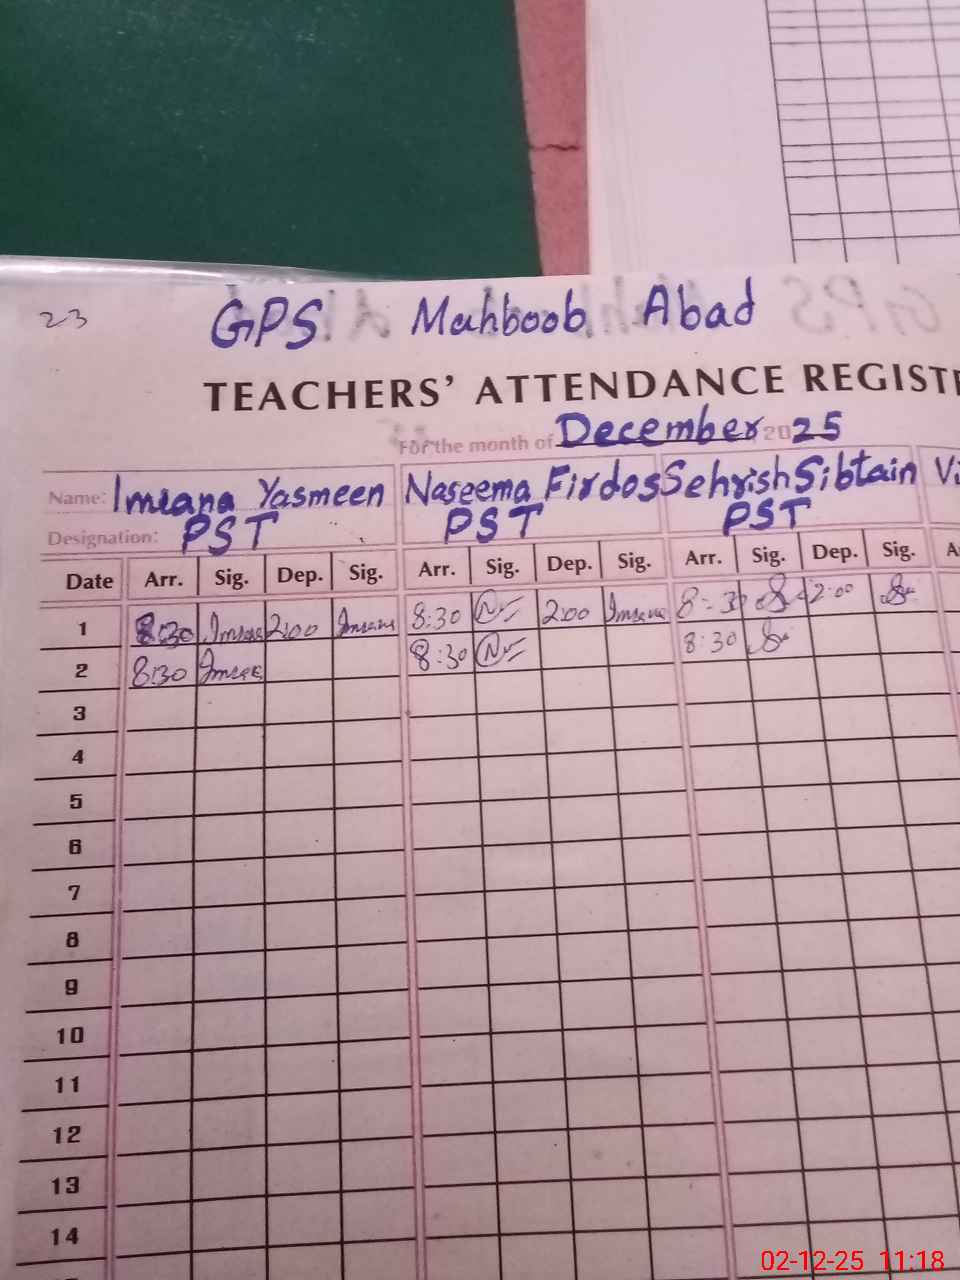 23
GPS Mahboob Abad
TEACHERS' ATTENDANCE REGISTE
For the month of December 2025
Name: Imrana Yasmeen Naseema Firdos Sehrish Sibtain Vi
Designation: PST PST PST
Date Arr. Sig. Dep. Sig. Arr. Sig. Dep. Sig. Arr. Sig. Dep. Sig. A
1 8:30 2:00 8:30 2:00 8:30 2:00
2 8:30 8:30 8:30
3
4
5
6
7
8
9
10
11
12
13
14
02-12-25 11:18